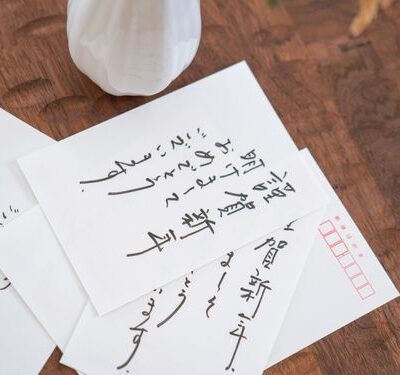 謹賀新年
明けまして
おめでとう
ございます
賀新年
まして
とう
ます
郵便はがき